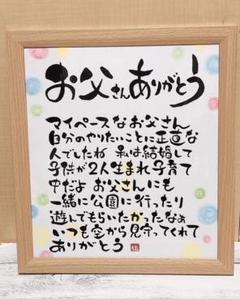 お父さんありがとう
マイペースなお父さん
自分のやりたいことに正直な
人でしたね 私は結婚して
子供が2人生まれ子育て
中だよ お父さんにも
一緒に公園に行ったり
遊んでもらいたかったなぁ
いつも空から見守ってくれて
ありがとう